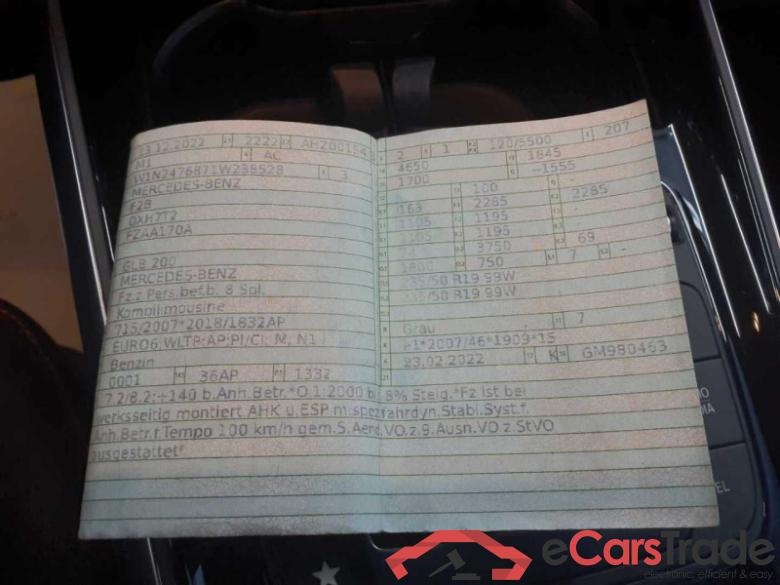 23.12.2022 2222 AHZ00154
M1 AC
W1N2476871W238528 3
MERCEDES-BENZ
F2B
0XH7T2
FZAA170A
GLB 200
MERCEDES-BENZ
Fz.z.Pers.bef.b. 8 Spl.
Kombilimousine
715/2007*2018/1832AP
EURO6;WLTP;AP;PI/CI; M, N1 I
Benzin
0001 36AP 1332
2 1 120/5500 207
4650 1845
1700 -1555
100 -
163 2285 2285
1105 1195
1195
3750 69
1800 750 7 -
235/50 R19 99W
235/50 R19 99W
Grau 7
e1*2007/46*1909*15
23.02.2022 K GM980463
7.2/8.2:+140 b.Anh.Betr.*O.1:2000 b. 8% Steig.*Fz ist bei
werksseitig montiert AHK u.ESP m.spez.fahrdyn.Stabl.Syst.f.
Anh.Betr.f.Tempo 100 km/h gem.S.Aend.VO.z.9.Ausn.VO.z.StVO
ausgestattet*
eCarsTrade
electronic, efficient & easy